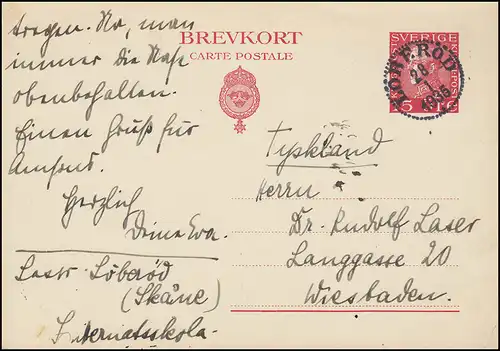 tragen. Na, man
immer die Nase
obenbehalten.
Einen Gruß für
Herzlich
Deine Eva.
Löberöd
(Skåne)
Internatsskola
BREVKORT
CARTE POSTALE
SVERIGE
LÖBERÖD
28
1935
15
Tyskland
Herrn
Dr. Rudolf Laser
Langgasse 20
Wiesbaden.